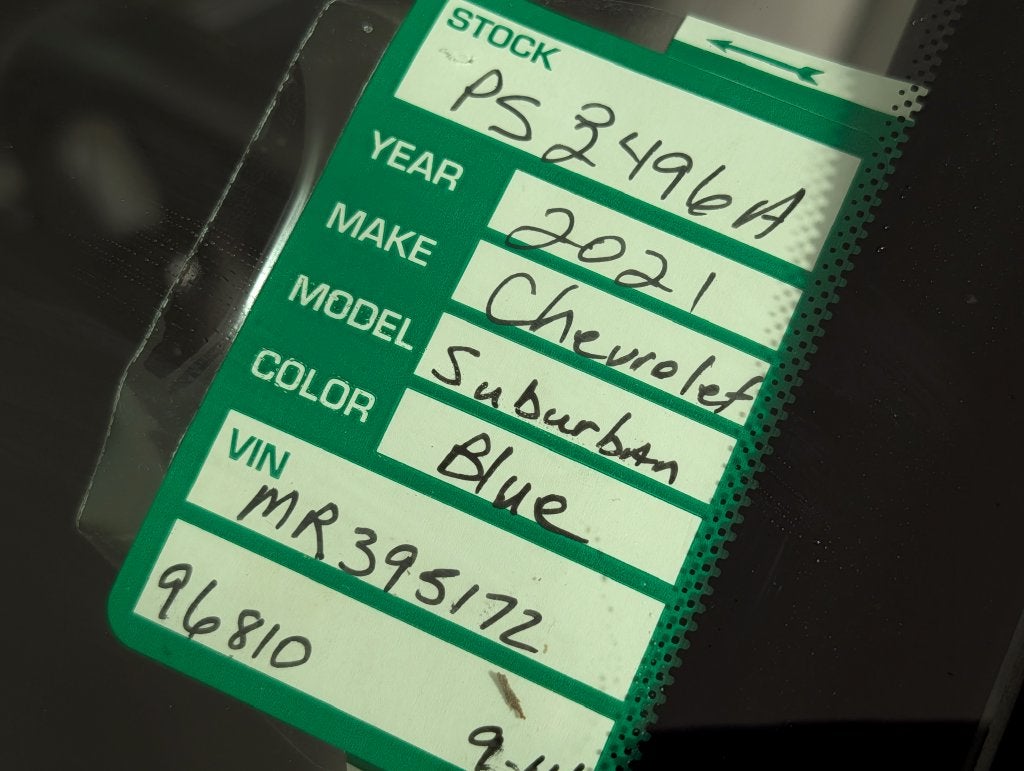 STOCK
PS3496A
YEAR 2021
MAKE Chevrolet
MODEL Suburban
COLOR Blue
VIN
MR395172
96810